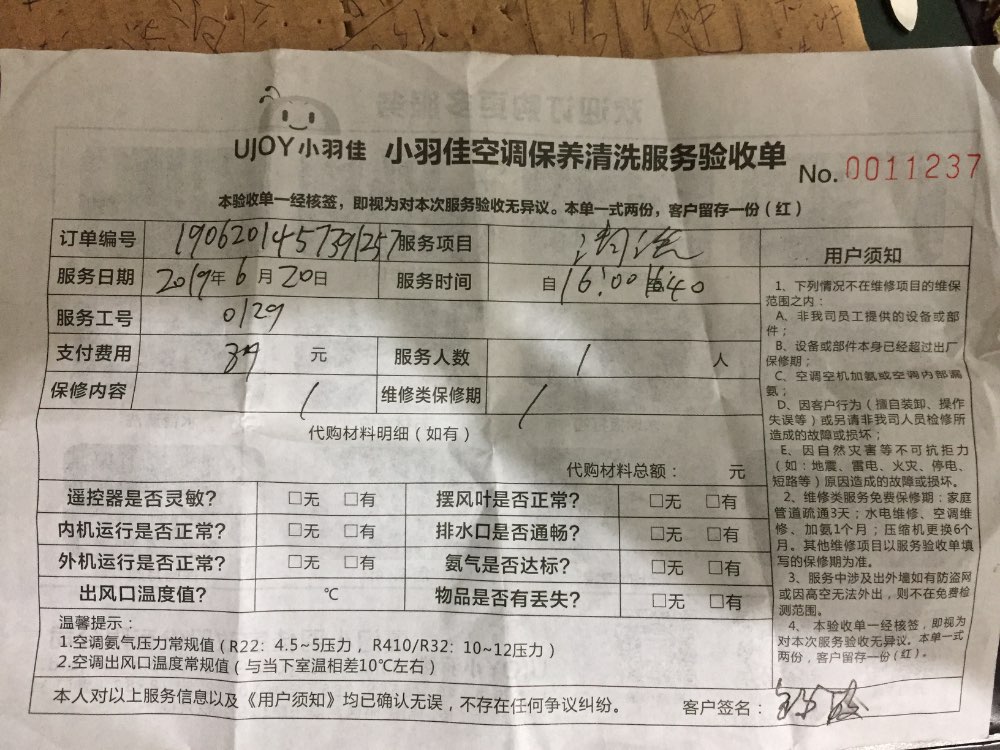 UJOY小羽佳 小羽佳空调保养清洗服务验收单 No. 0011237
本验收单一经核签，即视为对本次服务验收无异议。本单一式两份，客户留存一份（红）
订单编号 1906201457391257 服务项目 清洗
服务日期 2019年6月20日 服务时间 自16:00至16:40
服务工号 0129
支付费用 元 服务人数 1 人
保修内容 / 维修类保修期 /
代购材料明细（如有）
代购材料总额： 元
遥控器是否灵敏? □无 □有 摆风叶是否正常? □无 □有
内机运行是否正常? □无 □有 排水口是否通畅? □无 □有
外机运行是否正常? □无 □有 氨气是否达标? □无 □有
出风口温度值? ℃ 物品是否有丢失? □无 □有
温馨提示：
1.空调氨气压力常规值（R22：4.5~5压力， R410/R32：10~12压力）
2.空调出风口温度常规值（与当下室温相差10℃左右）
本人对以上服务信息以及《用户须知》均已确认无误，不存在任何争议纠纷。 客户签名：
用户须知
1、下列情况不在维修项目的维保
范围之内：
A、非我司员工提供的设备或部
件；
B、设备或部件本身已经超过出厂
保修期；
C、空调空机加氨或空调内部漏
氨；
D、因客户行为（擅自装卸、操作
失误等）或另请非我司人员检修所
造成的故障或损坏；
E、因自然灾害等不可抗拒力
（如：地震、雷电、火灾、停电、
短路等）原因造成的故障或损坏。
2、维修类服务免费保修期：家庭
管道疏通3天；水电维修、空调维
修、加氨1个月；压缩机更换6个
月。其他维修项目以服务验收单填
写的保修期为准。
3、服务中涉及出外墙如有防盗网
或因高空无法外出，则不在免费检
测范围。
4、本验收单一经核签，即视为
对本次服务验收无异议。本单一式
两份，客户留存一份（红）。